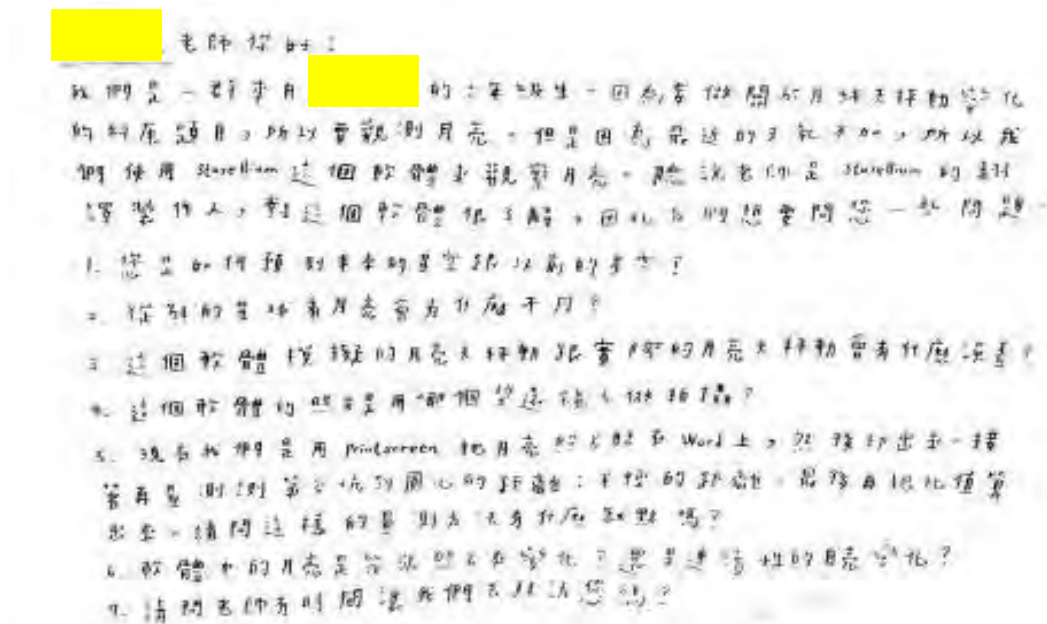 老師您好：
我們是一群來自 的六年級生。因為要做關於月球表移動變化
的科展題目，所以要觀測月亮。但是因為最近的天氣不好，所以我
們使用 Starellium 這個軟體來觀察月亮。聽說老師是 Starellium 的翻
譯製作人，對這個軟體很了解，因此我們想要問您一些問題。
1. 您是如何預測未來的星空跟以前的星空？
2. 從別的星球看月亮會有什麼不同？
3. 這個軟體模擬的月亮 移動跟實際的月亮 移動會有什麼誤差？
4. 這個軟體的 是用哪個望遠鏡 ？
5. 現在我們是用 printscreen 把月亮 Word 上，然後印出來。接
著再量測 到圓心的距離：半徑的距離。最後再 值算
出來。請問這樣的量測方法有什麼缺點嗎？
6. 軟體中的月亮是 變化？還是連續性的 變化？
7. 請問老師有時間讓我們去拜訪您嗎？